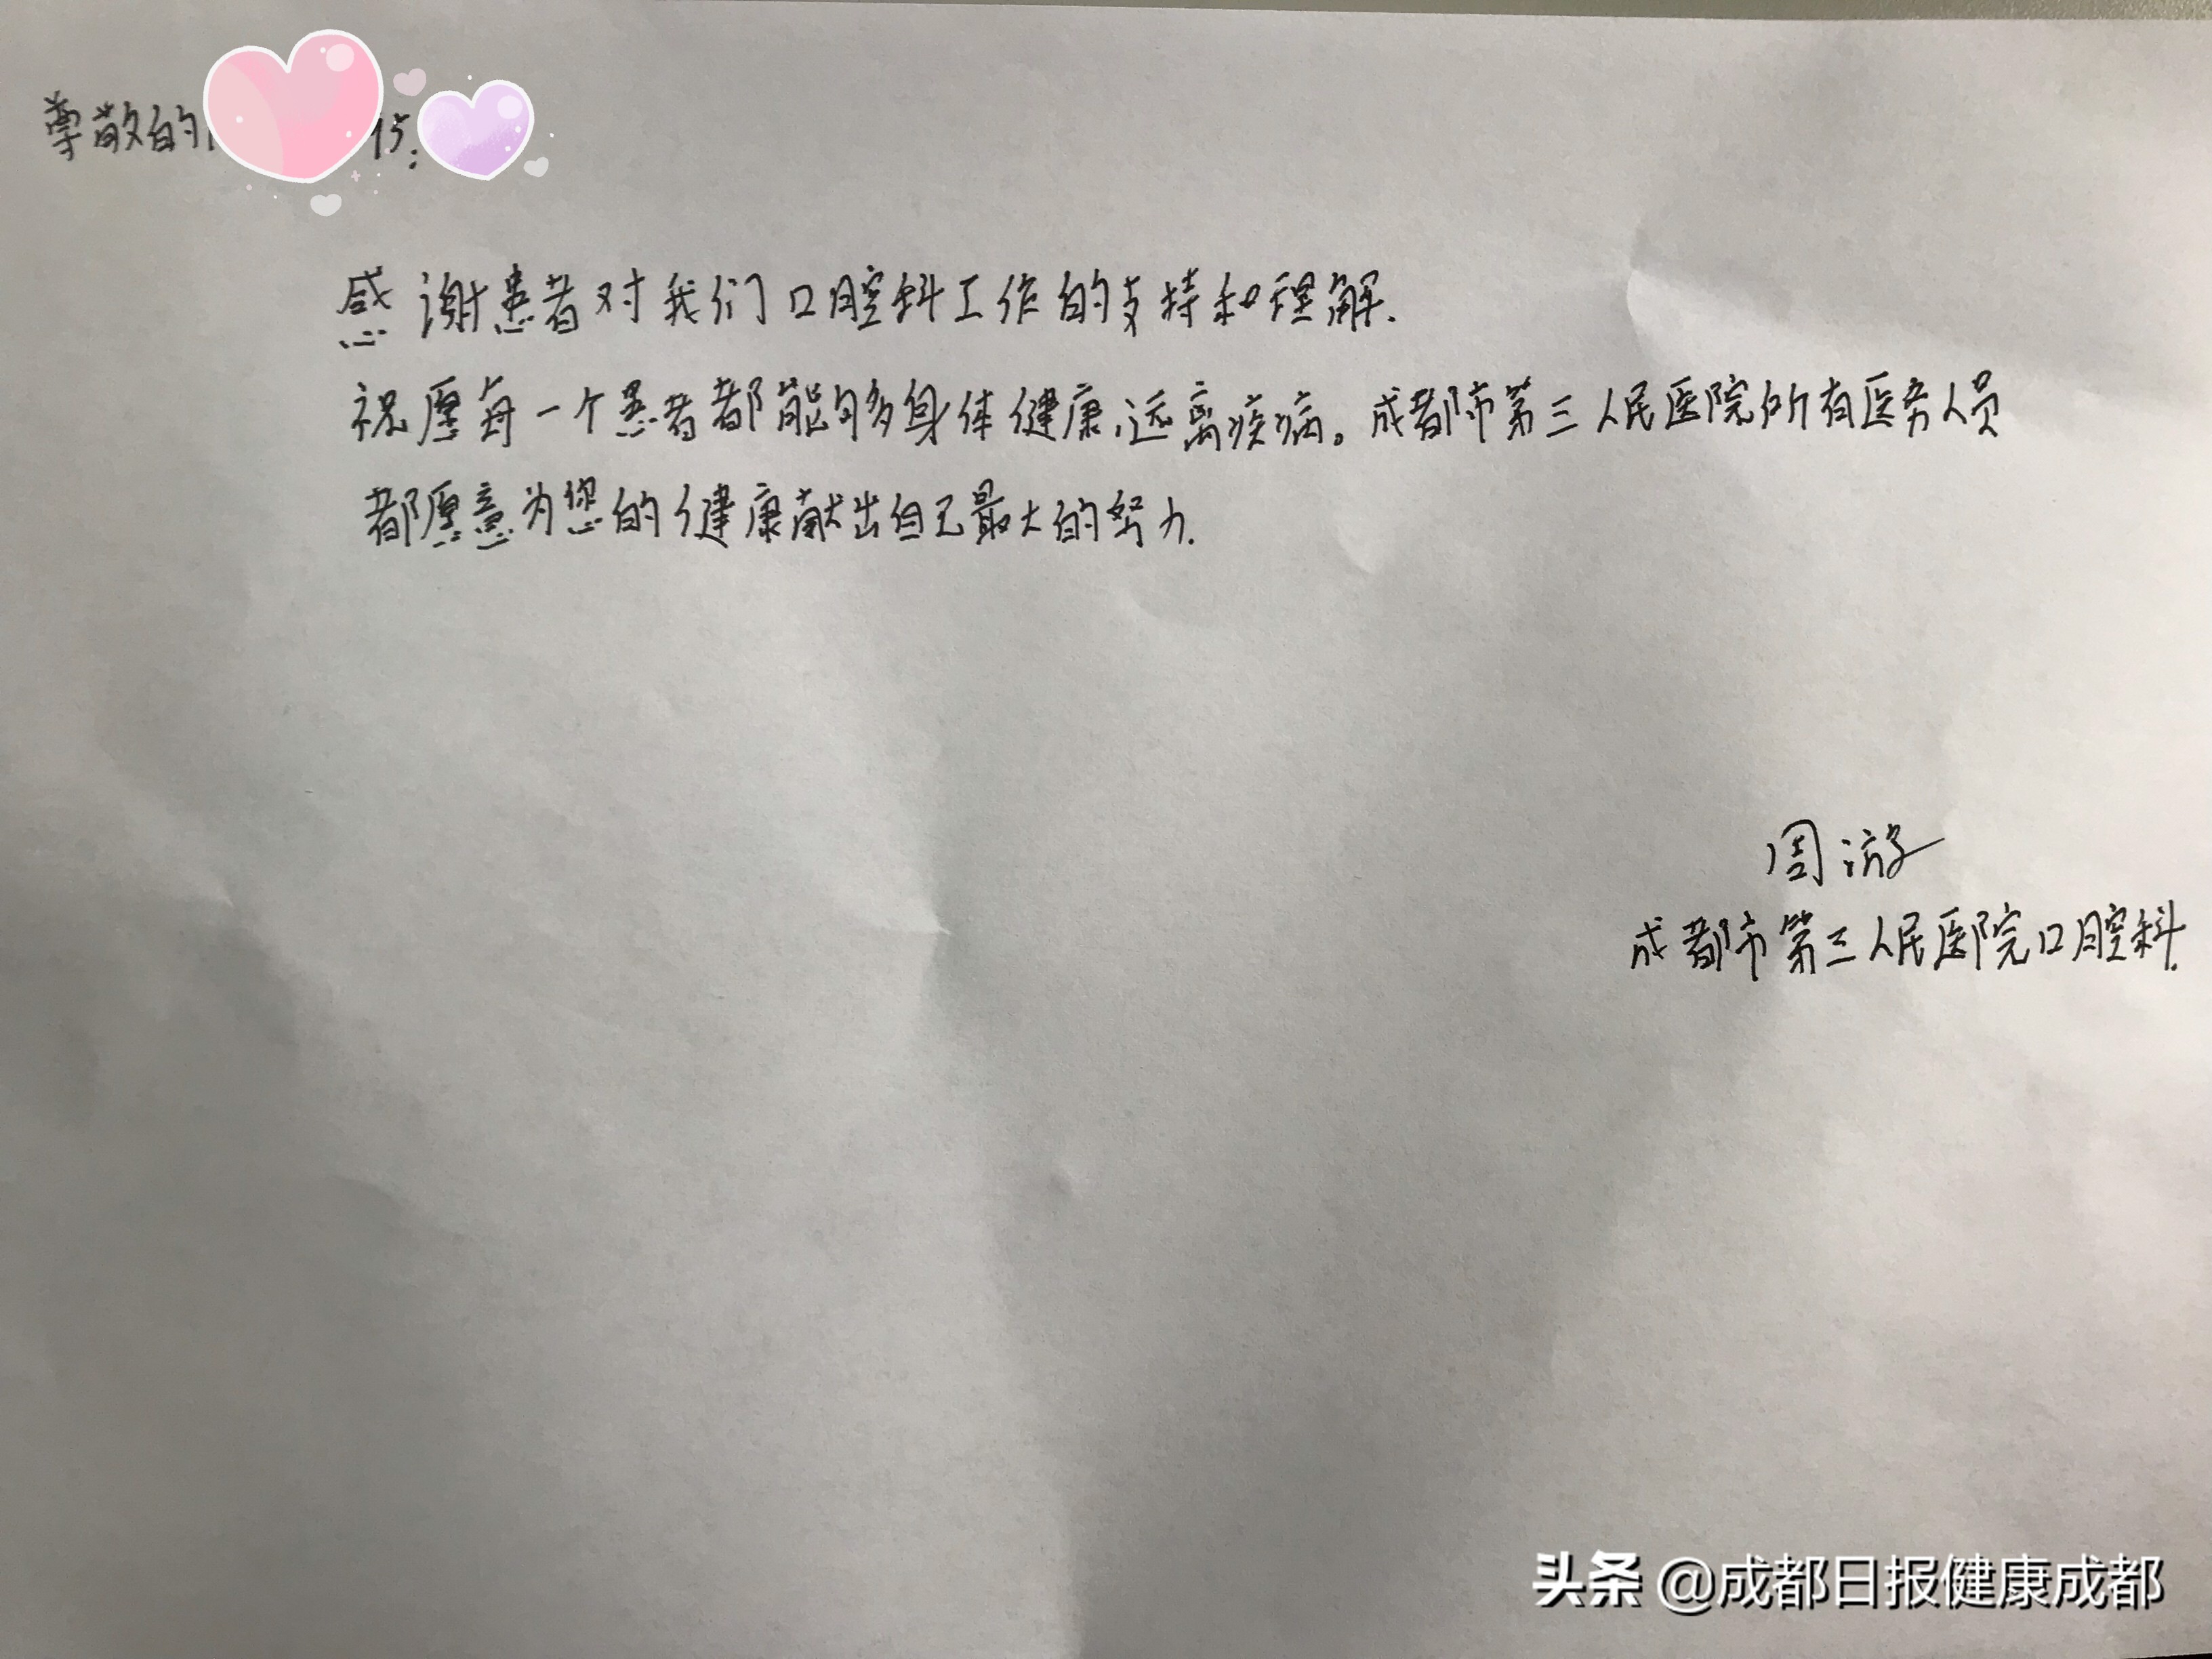 尊敬的
感谢患者对我们口腔科工作的支持和理解.
祝愿每一个患者都能够身体健康,远离疾病。成都市第三人民医院所有医务人员
都愿意为您的健康献出自己最大的努力.
周游
成都市第三人民医院口腔科.
头条 @成都日报健康成都